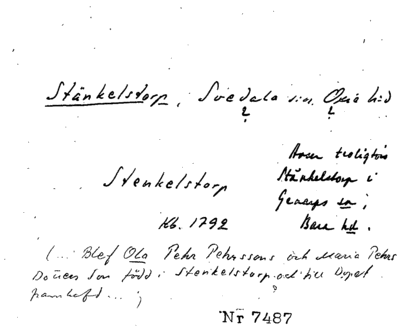 Stänkelstorp, Svedala sn, Oxie hd
? ?
Avser troligtvis
Stänkelstorp i
Stenkelstorp
Genarps sn i
Kb. 1792
Bara hd.
(... Blef Ola Pehr Pehrssons och Maria Pehrs
Dotters Son född i Stenkelstorp och till Dopet
?
frambufd...;
Nr 7487